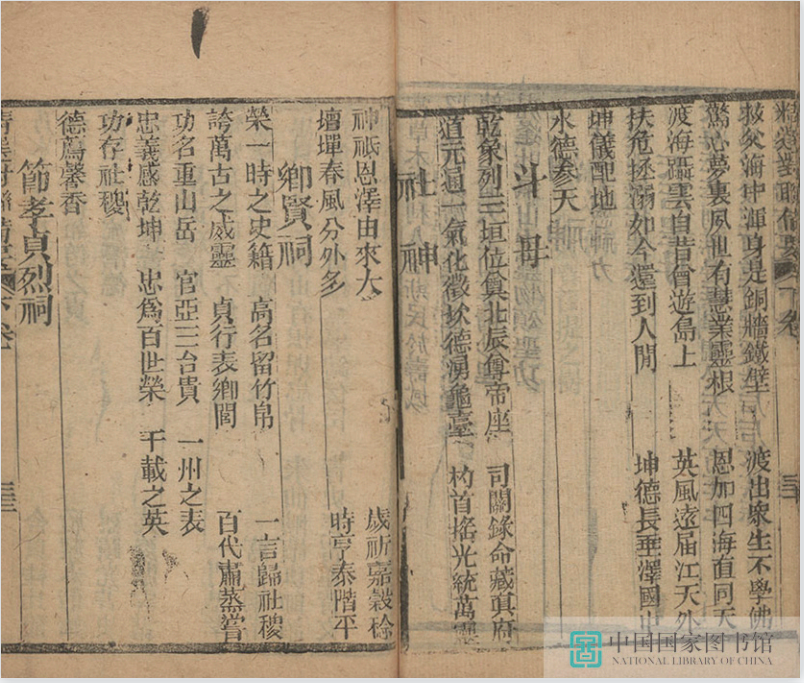 救父海中渾身是銅牆鐵壁 渡出衆生不學佛
驚心夢裏夙世有慧業靈根 恩加四海直同天
渡海躡雲自昔曾遊島上 英風遠届江天外
扶危拯溺如今還到人間 坤德長垂澤國中
坤儀配地
水德參天
斗母
乾象列三垣位奠北辰尊帝座 司關錄命藏眞府
道元通一氣化徵坎德湧龜臺 杓首搖光統萬靈
社神
神祇恩澤由來大 歲祈嘉穀稌
壇墠春風分外多 時亨泰階平
鄉賢祠
榮一時之史籍 高名留竹帛 一言歸社稷
誇萬古之威靈 貞行表鄉閭 百代肅蒸嘗
功名重山岳 官亞三台貴 一州之表
忠義感乾坤 忠爲百世榮 千載之英
功存社稷
德薦馨香
節孝貞烈祠
中国国家图书馆
NATIONAL LIBRARY OF CHINA